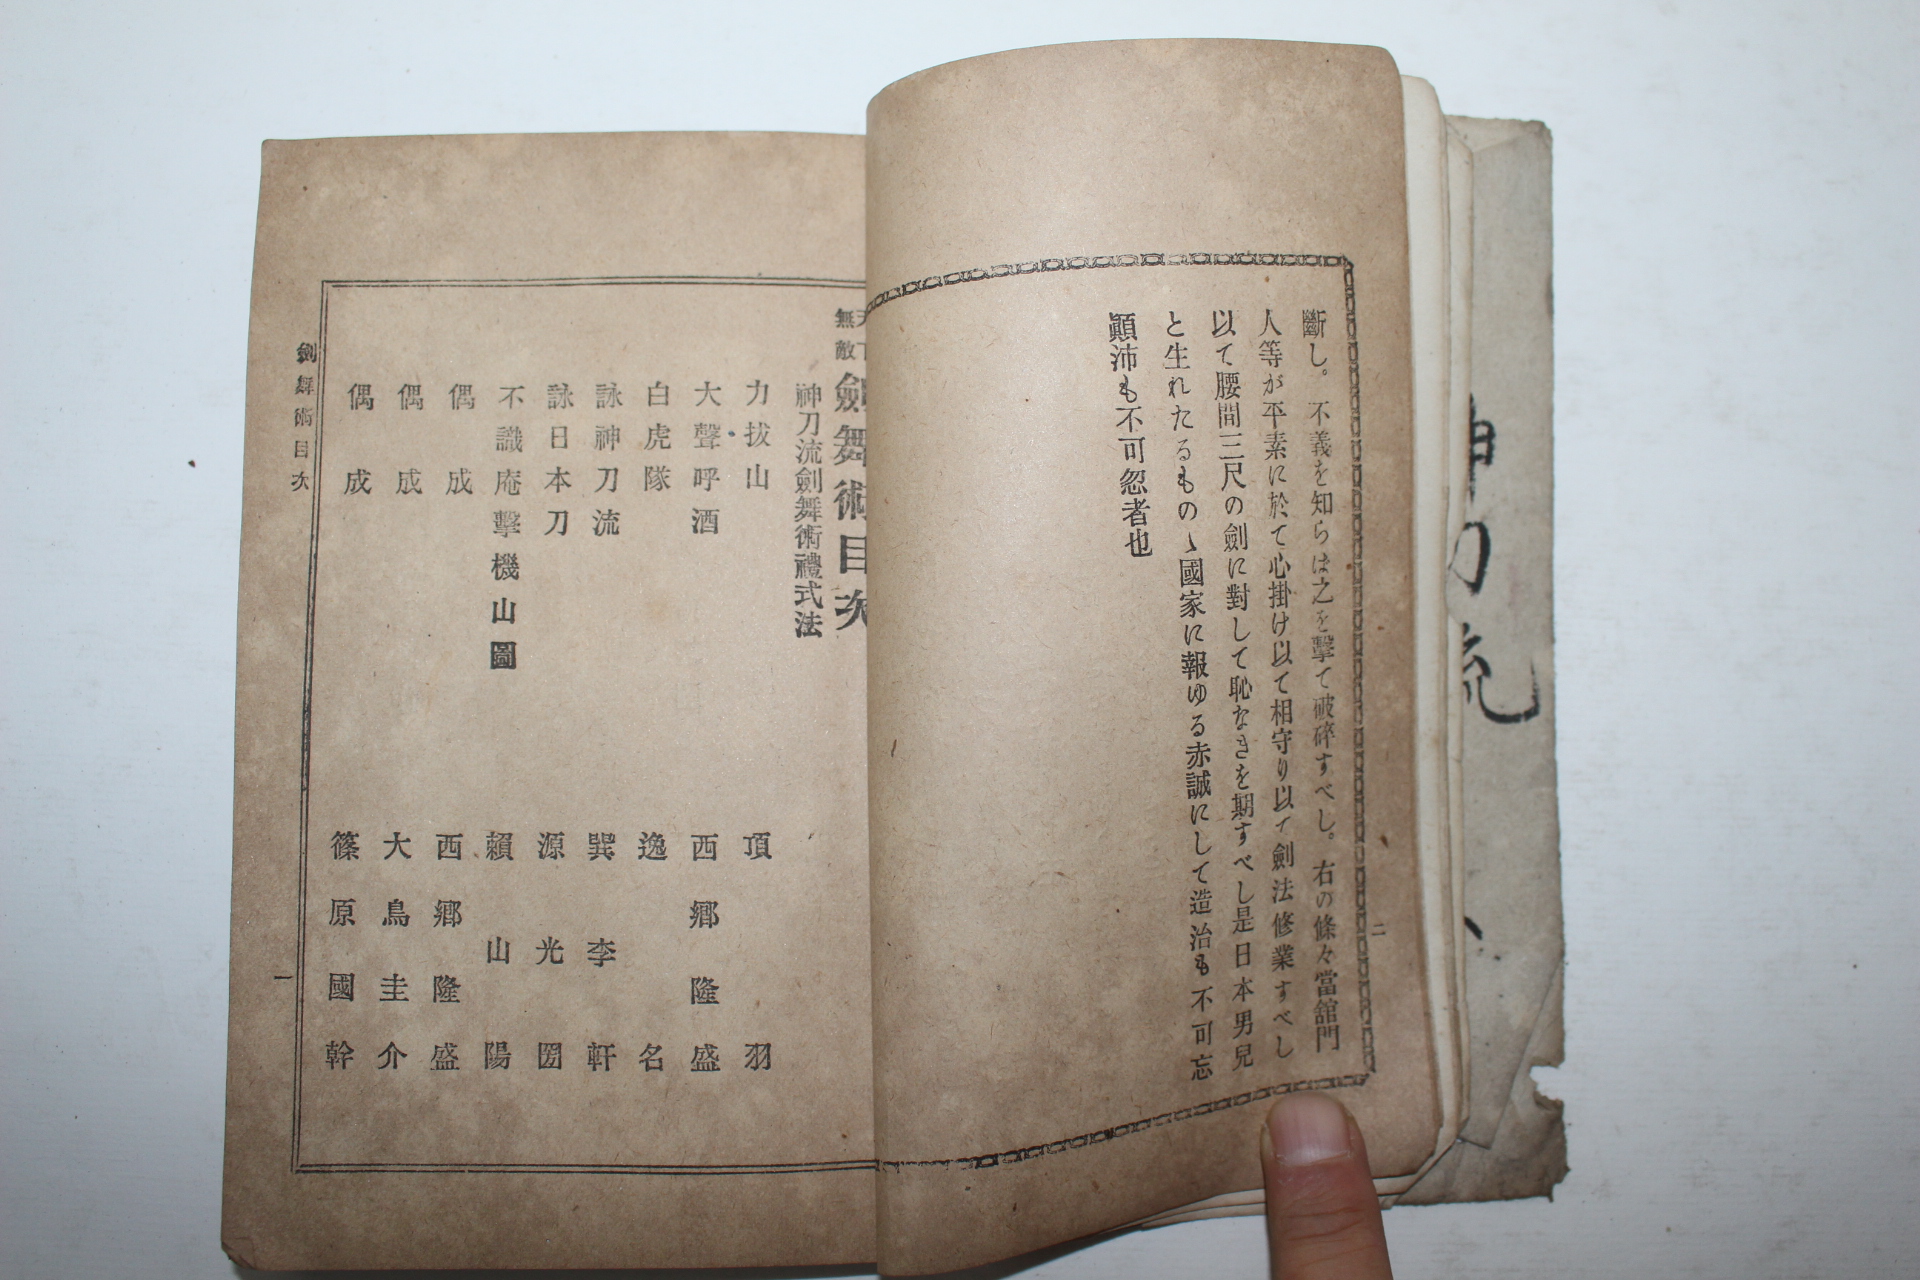 斷し。不義を知らは之を擊て破碎すべし。右の條々當舘門
人等が平素に於て心掛け以て相守り以て劍法修業すべし
以て腰間三尺の劍に對して恥なきを期すべし是日本男兒
と生れたるものゝ國家に報ゆる赤誠にして造治も不可忘
顚沛も不可忽者也
二
天下無敵 劍舞術目次
神刀流劍舞術禮式法
力拔山 項羽
大聲呼酒 西鄕隆盛
白虎隊 逸名
詠神刀流 巽李軒
詠日本刀 源光圀
不識庵擊機山圖 賴山陽
偶成 西鄕隆盛
偶成 大鳥圭介
偶成 篠原國幹
劍舞術目次
一
神刀流